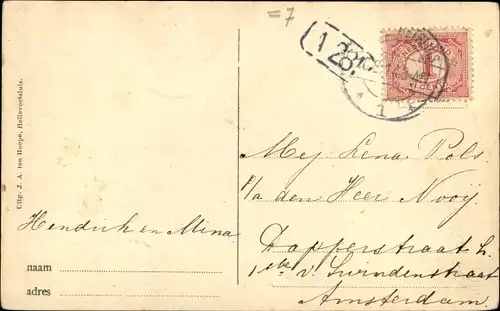 =7
128
1
Mej Lena Pols.
P/a den Heer Nooij
Dapperstraat h.
1ste v. Swindenstraat
Amsterdam.
Hendrik en Mina
naam
adres
Uitg. J. A. ten Hoope, Hellevoetsluis.